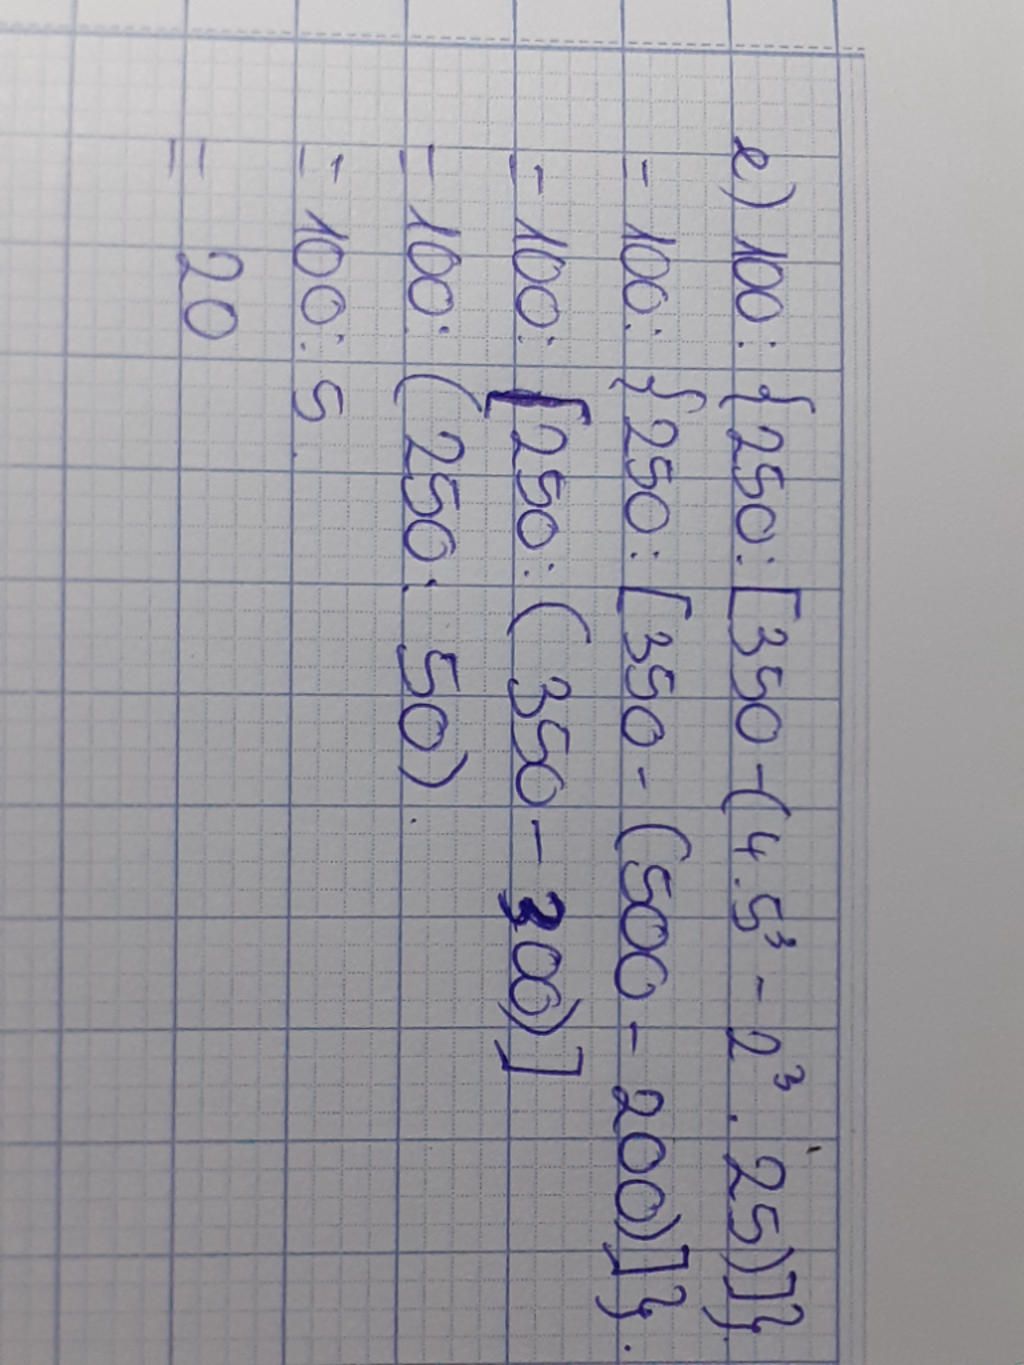 e) 100 : {250 : [350 - (4.5³ - 2³ . 25)]}.
= 100 : {250 : [350 - (500 - 200)]}.
= 100 : [250 : (350 - 300)]
= 100 : (250 : 50).
= 100 : 5.
= 20